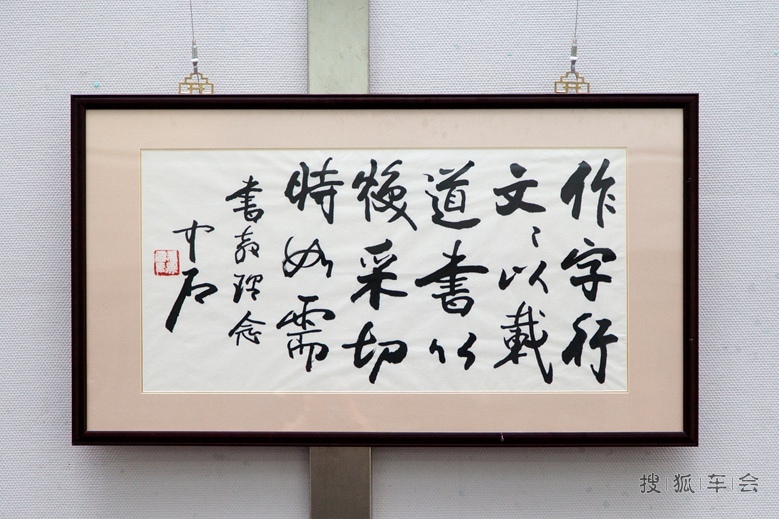 作字行
文〻以載
道書以
煥采切
時如需
書教理念
中石
搜狐车会